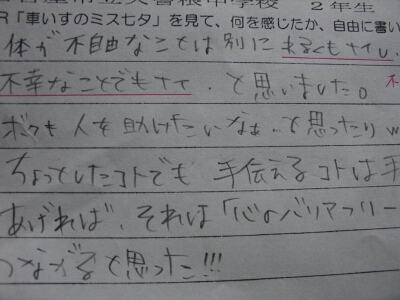 中学校 2年生
R「車いすのミス七夕」を見て、何を感じたか、自由に書い
体が不自由なことは別にわるくもナイし、
不幸なことでもナイ、と思いました。
ボクも人を助けたいなぁ、と思ったりw
ちょっとしたコトでも手伝えるコトは手
あげれば、それは「心のバリアフリー
つながると思った!!!